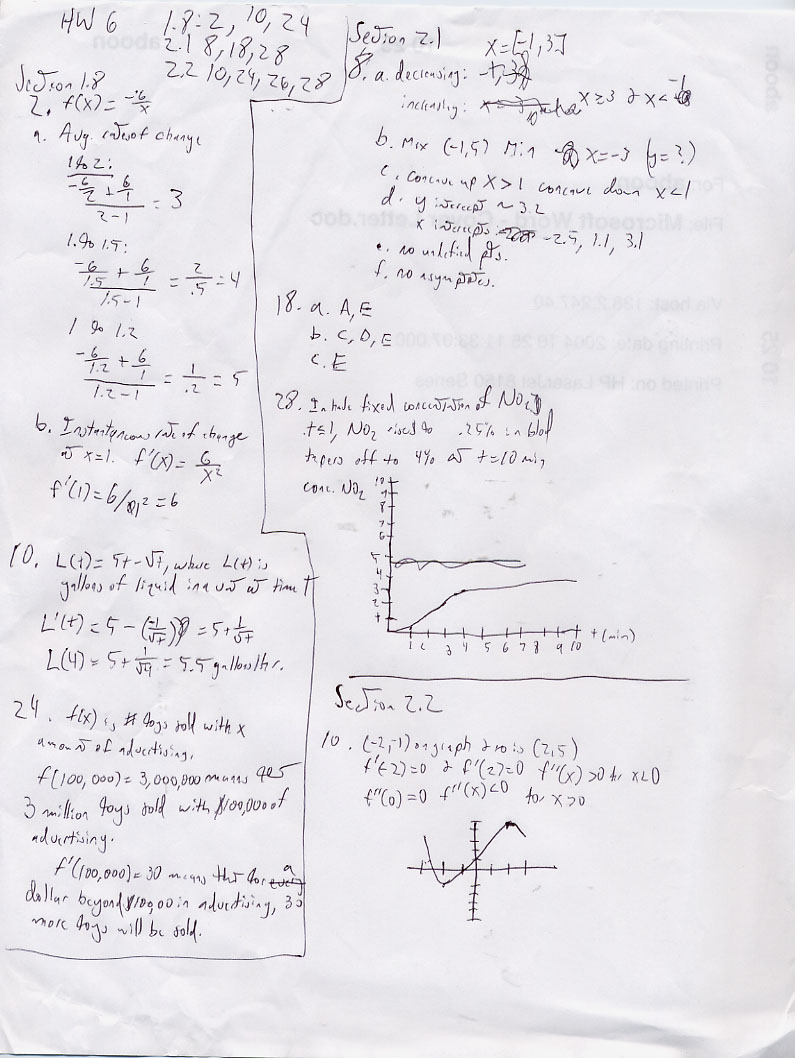 HW 6 1.8: 2, 10, 24
2.1 8, 18, 28
2.2 10, 24, 26, 28
Section 1.8
2. f(x) = -6/x
a. Avg. rates of change
1 to 2:
(-6/2 + 6/1)/(2-1) = 3
1 to 1.5:
(-6/1.5 + 6/1)/(1.5-1) = 2/.5 = 4
1 to 1.2
(-6/1.2 + 6/1)/(1.2-1) = 1/.2 = 5
b. Instantaneous rate of change
at x=1. f'(x) = 6/x²
f'(1) = 6/1² = 6
10. L(t) = 5t - √t, where L(t) is
gallons of liquid in a vat at time t
L'(t) = 5 - (-1/√t) = 5 + 1/√t
L(4) = 5 + 1/√4 = 5.5 gallons/hr.
24. f(x) is # toys sold with x
amount of advertising.
f(100,000) = 3,000,000 means
3 million toys sold with $100,000 of
advertising.
f'(100,000) = 30 means that for a
dollar beyond $100,00 in advertising, 30
more toys will be sold.
Section 2.1
x = [-1, 3]
8. a. decreasing: -1, 3
increasing: x ≥ 3 & x < -1
b. Max (-1, 5) Min x = -3 (y = ?)
c. concave up x > 1 concave down x < 1
d. y intercept ~ 3.2
x intercepts: -2.5, 1.1, 3.1
e. no undefined pts.
f. no asymptotes.
18. a. A, E
b. C, D, E
c. E
28. Inhale fixed concentration of NO₂
t≤1, NO₂ rises to .25% in blod
tapers off to 4% at t=10 min,
conc. NO₂
10
9
8
7
6
5
4
3
2
1
1 2 3 4 5 6 7 8 9 10 t (min)
Section 2.2
10. (-2,-1) on graph & so is (2,5)
f'(-2)=0 & f'(2)=0 f''(x)>0 for x<0
f''(0)=0 f''(x)<0 for x>0